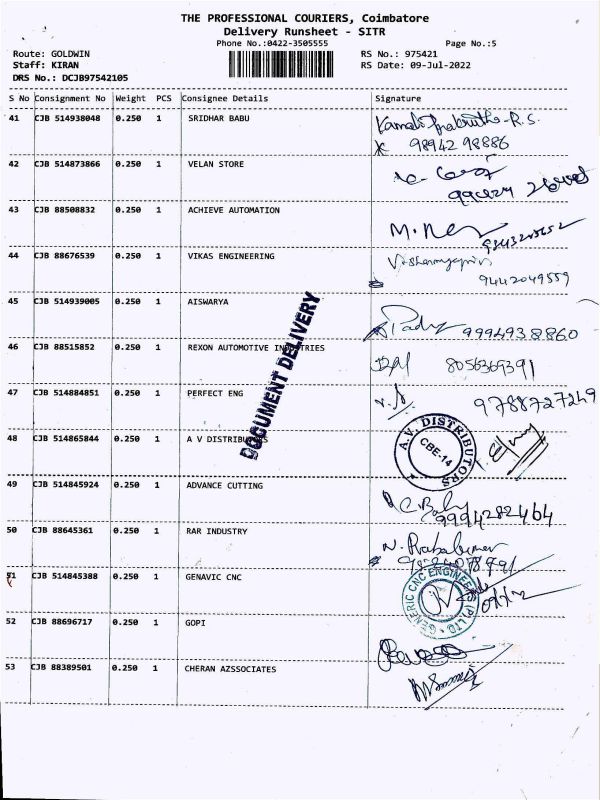 THE PROFESSIONAL COURIERS, Coimbatore
Delivery Runsheet - SITR
Phone No.:0422-3505555
Page No.:5
Route: GOLDWIN
RS No.: 975421
Staff: KIRAN
RS Date: 09-Jul-2022
DRS No.: DCJB97542105
S No Consignment No Weight PCS Consignee Details Signature
41 CJB 514938048 0.250 1 SRIDHAR BABU
98942 98886
42 CJB 514873866 0.250 1 VELAN STORE
43 CJB 88508832 0.250 1 ACHIEVE AUTOMATION
44 CJB 88676539 0.250 1 VIKAS ENGINEERING
9442049559
45 CJB 514939005 0.250 1 AISWARYA
9994938860
46 CJB 88515852 0.250 1 REXON AUTOMOTIVE INDUSTRIES
8056369391
47 CJB 514884851 0.250 1 PERFECT ENG
9788727249
DOCUMENT DELIVERY
48 CJB 514865844 0.250 1 A V DISTRIBUTORS
A.V. DISTRIBUTORS
CBE-14
49 CJB 514845924 0.250 1 ADVANCE CUTTING
9994282464
50 CJB 88645361 0.250 1 RAR INDUSTRY
51 CJB 514845388 0.250 1 GENAVIC CNC
52 CJB 88696717 0.250 1 GOPI
53 CJB 88389501 0.250 1 CHERAN AZSSOCIATES